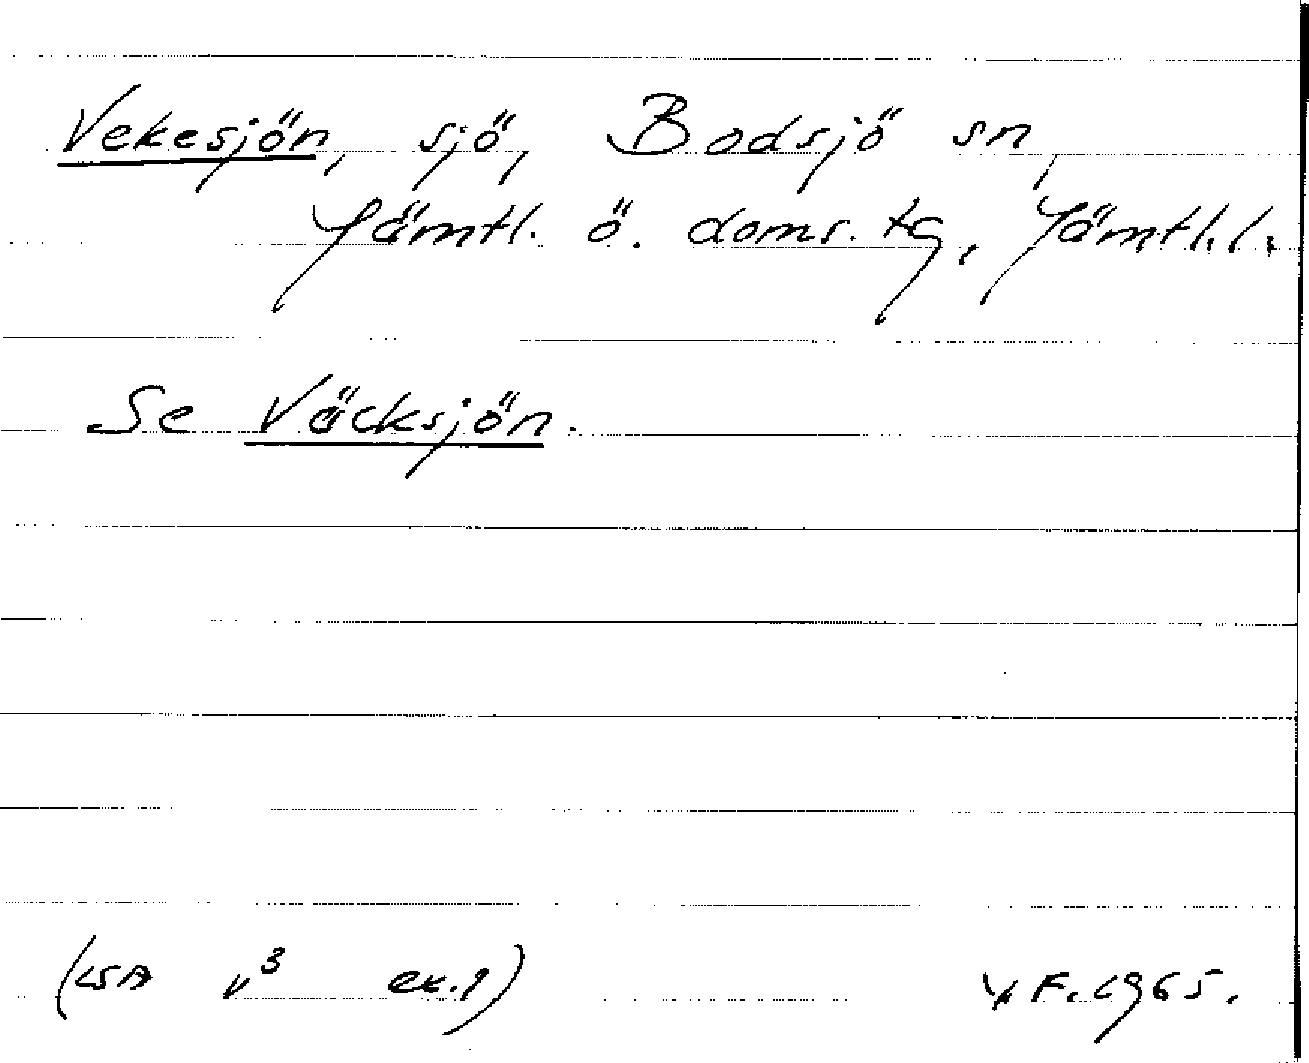 Vekesjön, sjö, Bodsjö sn,
Jämtl. ö. doms. tg, Jämtl. l.
Se Väcksjön.
(LSA v³ ek. 9) F. 1965.